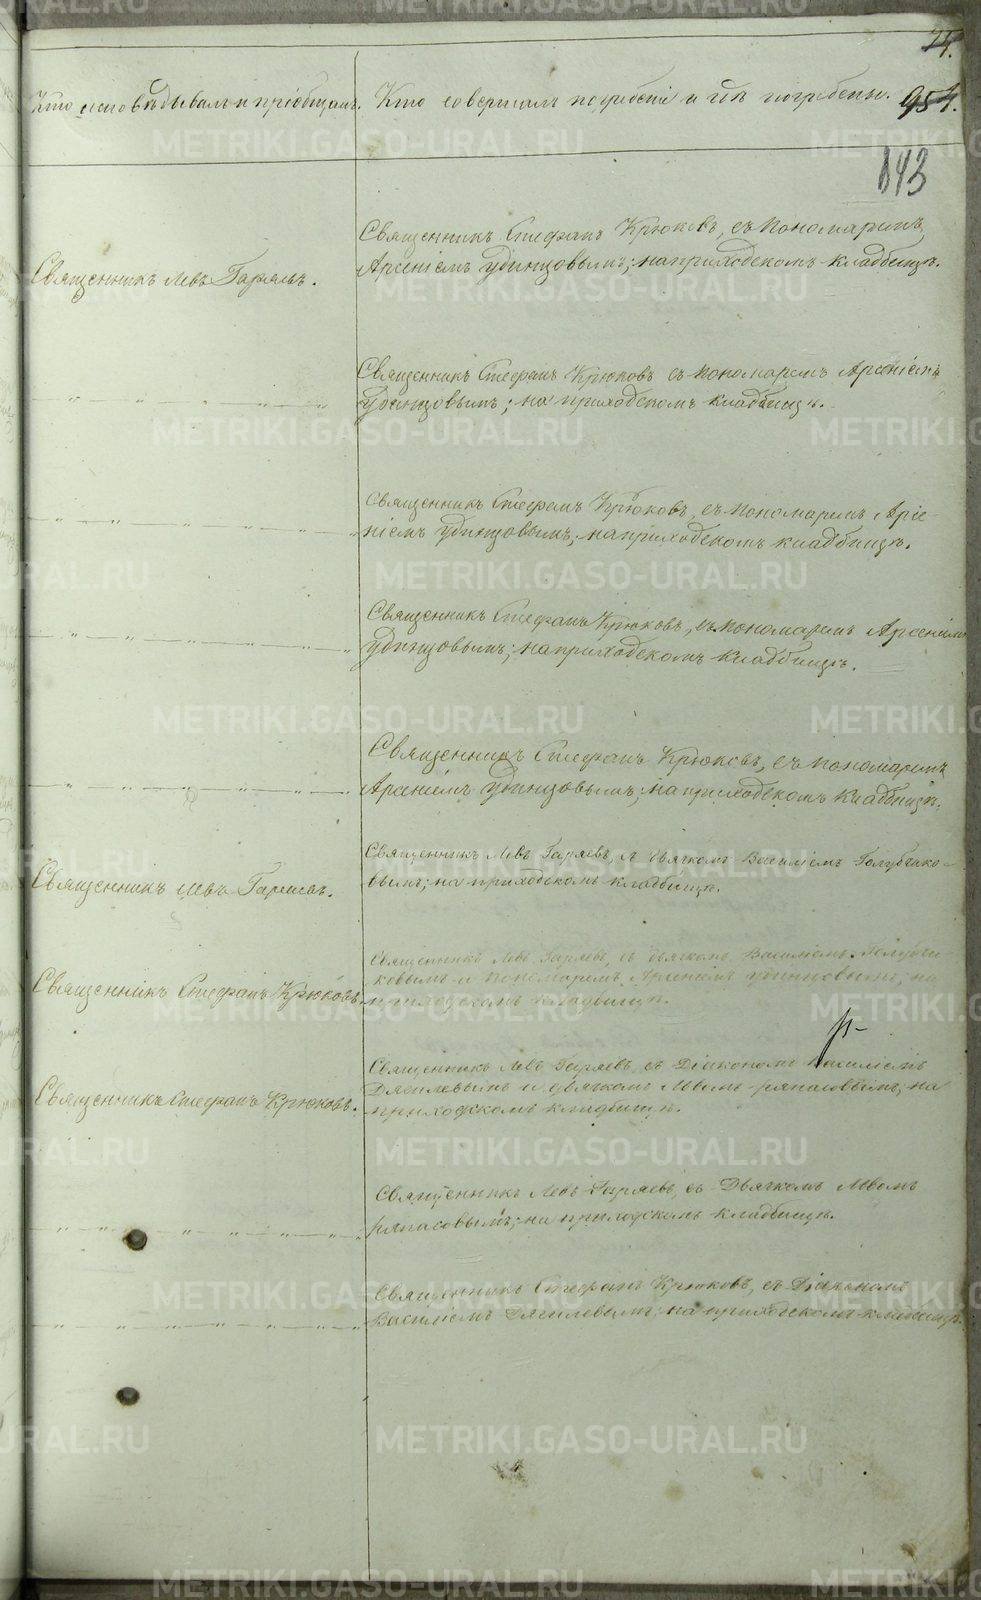 74.
954.
843
Кто исповѣдывалъ и пріобщалъ. Кто совершалъ погребеніе и гдѣ погребены.
Священникъ Стефанъ Крюковъ, съ пономаремъ
Священникъ Левъ Гаряевъ. Арсеніемъ Удинцовымъ; на приходскомъ кладбищѣ.
Священникъ Стефанъ Крюковъ съ пономаремъ Арсеніемъ
" " " " " Удинцовымъ; на приходскомъ кладбищѣ.
Священникъ Стефанъ Крюковъ, съ пономаремъ Арсе-
" " " " " ніемъ Удинцовымъ; на приходскомъ кладбищѣ.
Священникъ Стефанъ Крюковъ, съ пономаремъ Арсеніемъ
" " " " " Удинцовымъ; на приходскомъ кладбищѣ.
Священникъ Стефанъ Крюковъ, съ пономаремъ
" " " " " Арсеніемъ Удинцовымъ; на приходскомъ кладбищѣ.
Священникъ Левъ Гаряевъ, съ дьячкомъ Василіемъ Голубчико-
Священникъ Левъ Гаряевъ. вымъ; на приходскомъ кладбищѣ.
Священникъ Левъ Гаряевъ, съ дьячкомъ Василіемъ Голубчи-
Священникъ Стефанъ Крюковъ. ковымъ и пономаремъ Арсеніемъ Удинцовымъ, на
приходскомъ кладбищѣ.
Священникъ Левъ Гаряевъ, съ Діакономъ Василіемъ
Священникъ Стефанъ Крюковъ. и дьячкомъ Львомъ на
приходскомъ кладбищѣ.
Священникъ Левъ Гаряевъ, съ Дьячкомъ Львомъ
" " " " " на приходскомъ кладбищѣ.
Священникъ Стефанъ Крюковъ, съ Діакономъ
" " " " " Василіемъ на приходскомъ кладбищѣ.
METRIKI.GASO-URAL.RU